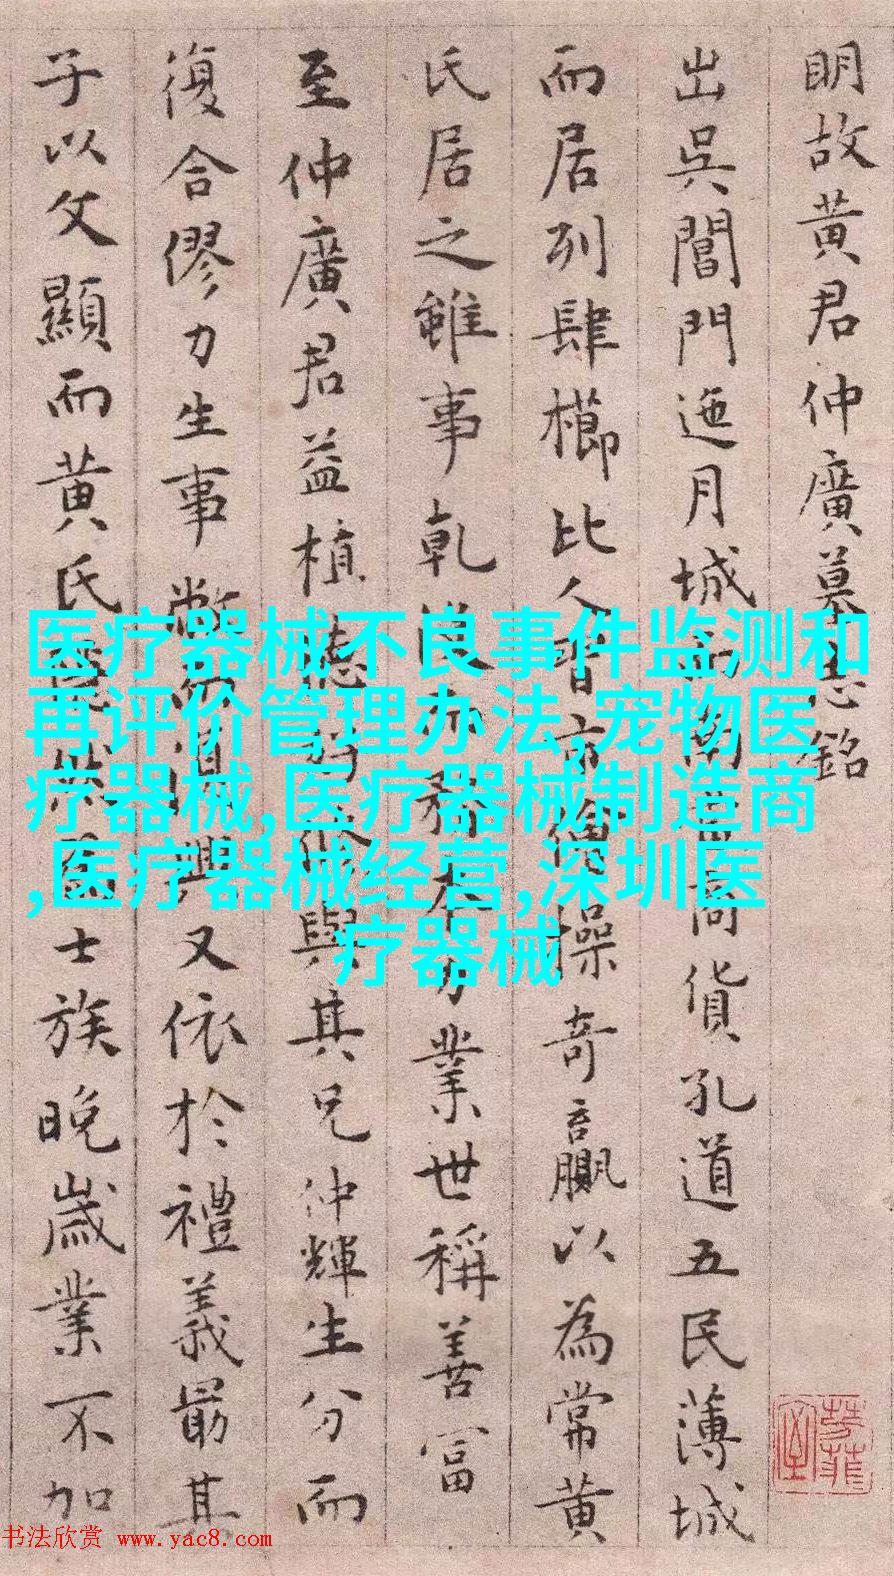 明故黄君仲廣墓志銘
出吳閶門迤月城而南商貨孔道五民薄城
而居列肆櫛比人習市儈操奇贏以為常黄
氏居之雖事乾没亦務本力業世稱善富
至仲廣君益植德與其兄仲輝生分而
復合僇力生事興又依於禮義最其
子以文顯而黄氏士族晚歲業不加
医疗器械不良事件监测和
再评价管理办法,宠物医
疗器械,医疗器械制造商
,医疗器械经营,深圳医
疗器械
书法欣赏 www.yac8.com